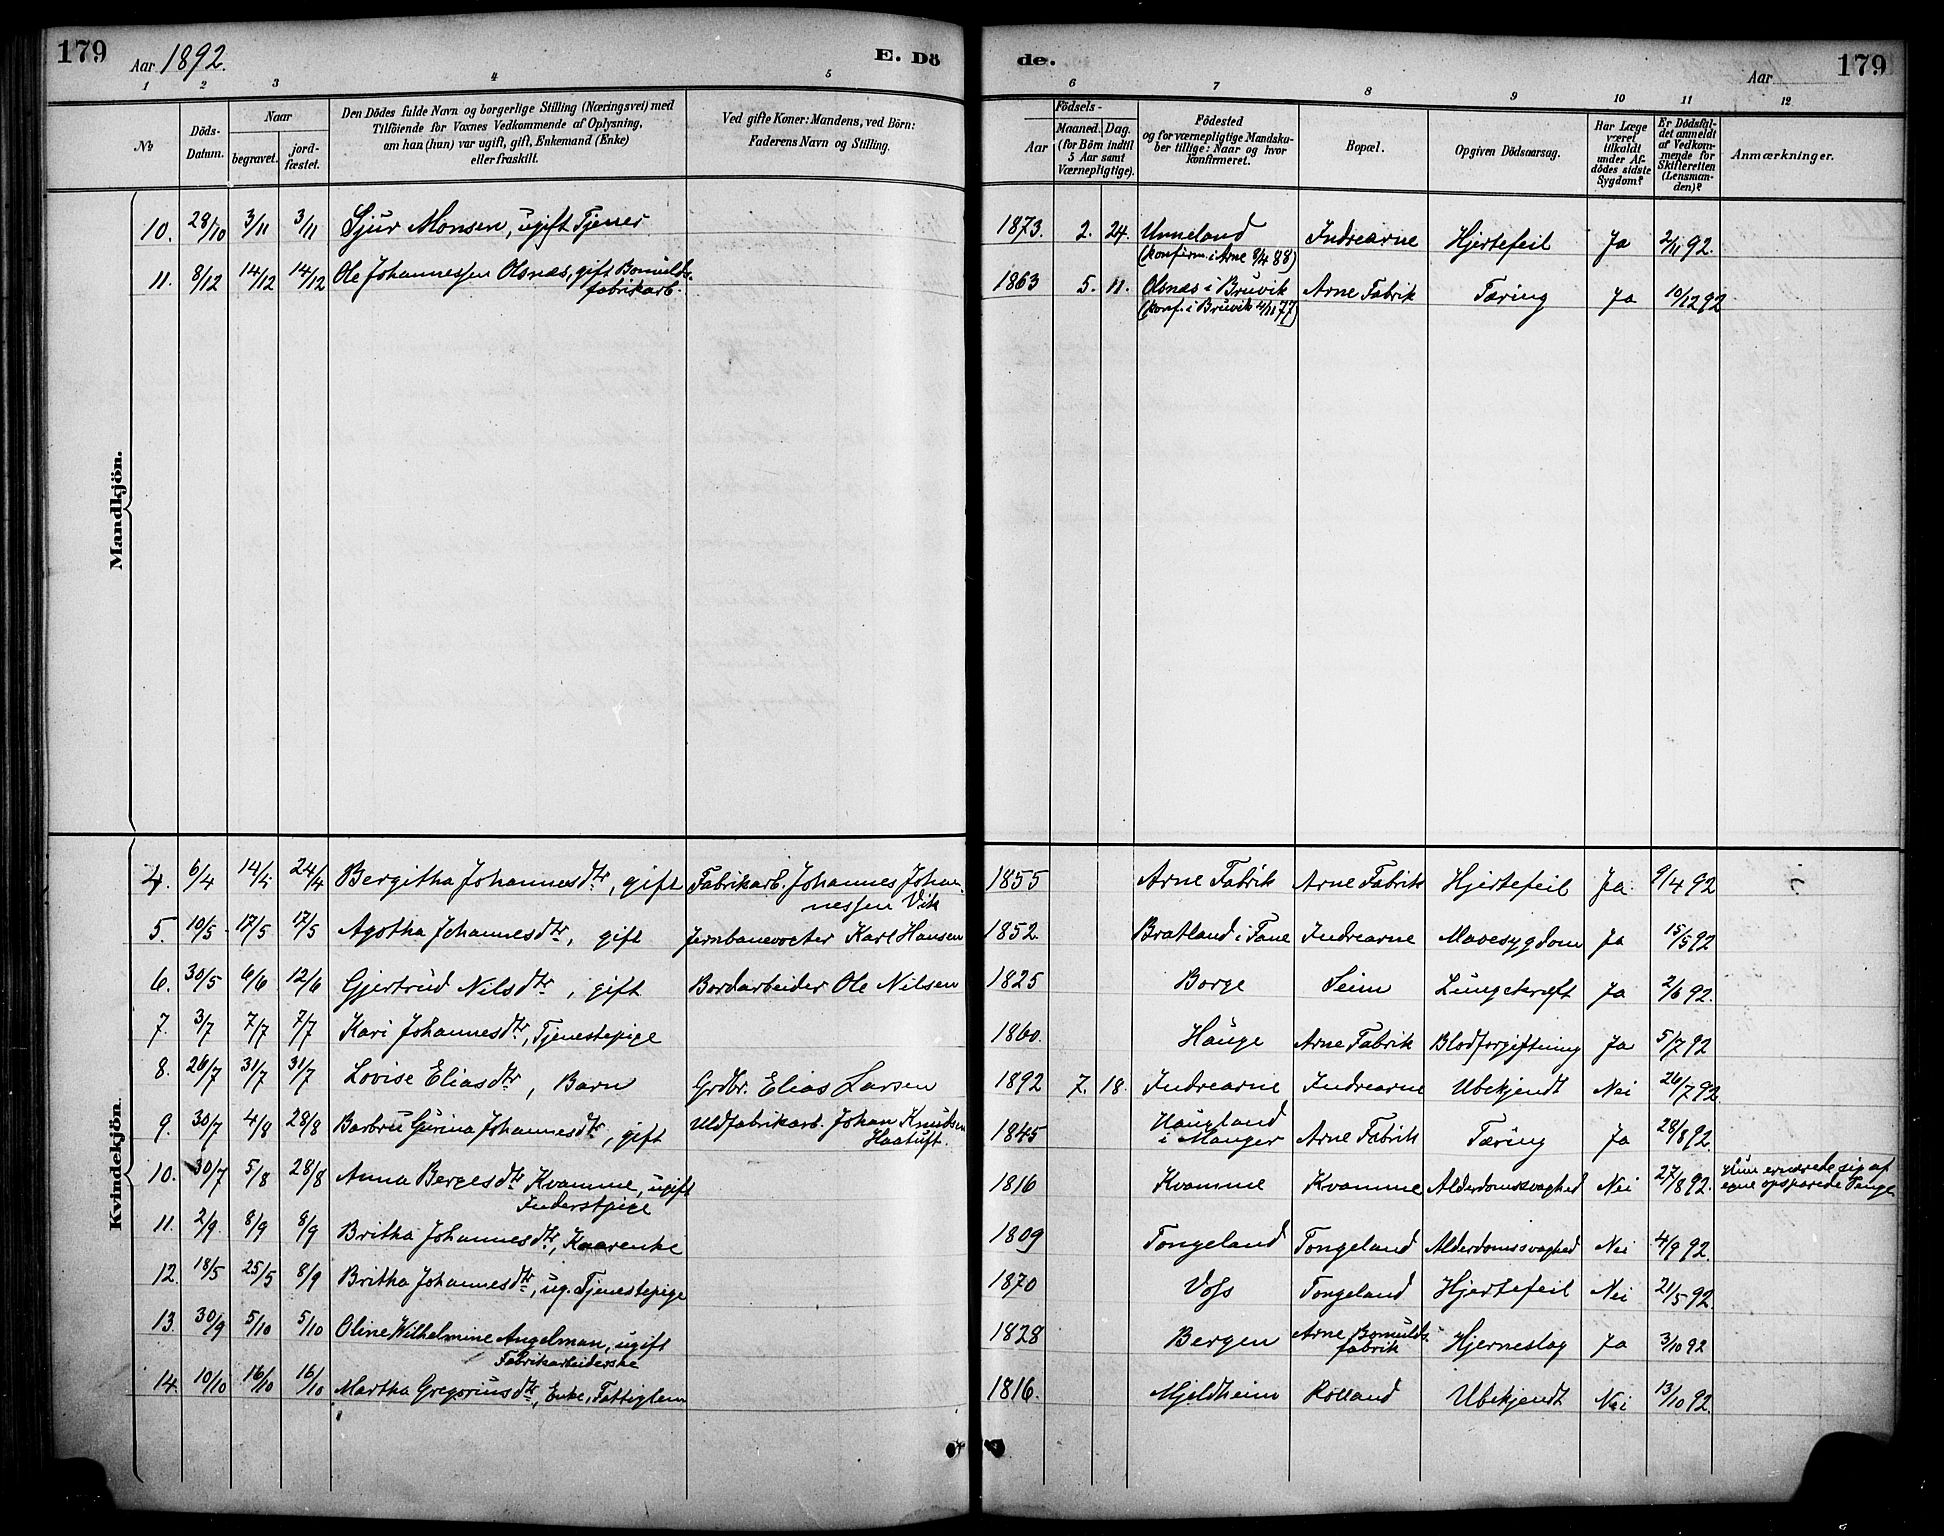 179
Aar 1892.
E. Dö
de.
Aar
179
1 2 3 4 5 6 7 8 9 10 11 12
No
Döds-
Datum.
Naar
begravet.
jord-
fæstet.
Den Dödes fulde Navn og borgerlige Stilling (Næringsvei) med
Tilföiende for Voxnes Vedkommende af Oplysning,
om han (hun) var ugift, gift, Enkemand (Enke)
eller fraskilt.
Ved gifte Koner: Mandens, ved Börn:
Faderens Navn og Stilling.
Födsels-
Aar
Maaned. Dag.
(for Börn indtil
5 Aar samt
Værnepligtige).
Födested
og for værnepligtige Mandska-
ber tillige: Naar og hvor
konfirmeret.
Bopæl.
Opgiven Dödsaarsag.
Har Læge
været
tilkaldt
under Af-
dödes sidste
Sygdom?
Er Dödsfal-
det anmeldt
af Vedkom-
mende for
Skifteretten
(Lensman-
den)?
Anmærkninger.
Mandkjön.
10. 28/10 3/11 3/11 Sjur Monsen, ugift Tjener 1873. 2. 24. Unneland Indrearne Hjertefeil Ja 2/11 92.
(konfirm. i Arne 8/4 88)
11. 8/12 14/12 14/12 Ole Johannessen Olsnæs, gift Bomulds- 1863 5. 11. Olsnæs i Bruvik Arne Fabrik Tæring Ja 10/12 92
fabrikarb. (konf. i Bruvik 4/11 77)
Kvindekjön.
4. 6/4 14/4 24/4 Bergitha Johannesdtr, gift Fabrikarb. Johannes Johan- 1855 Arne Fabrik Arne Fabrik Hjertefeil Ja. 9/4 92
nessen Vik
5. 10/5 17/5 17/5 Agotha Johannesdtr, gift Jernbanevogter Karl Hansen 1852. Bratland i Fane Indrearne Mavesygdom Ja 15/5 92
6. 30/5 6/6 12/6 Gjertrud Nilsdtr, gift Bordarbeider Ole Nilsen 1825 Borge Seim Lungekræft Ja 2/6 92.
7. 3/7 7/7 7/7 Kari Johannesdtr, Tjenestepige 1860. Hauge Arne Fabrik Blodforgiftning Ja 5/7 92
8. 26/7 31/7 31/7 Lovise Eliasdtr, Barn Grdbr. Elias Larsen 1892 7. 18. Indrearne Indrearne Ubekjendt Nei 26/7 92.
9. 30/7 4/8 28/8 Barbru Gurina Johannesdtr, gift Uldfabrikarb. Johan Knudsen 1845 Haugland Arne Fabrik Tæring Ja 28/8 92.
Haatuft. i Manger
10. 30/7 5/8 28/8 Anna Bergesdtr Kvamme, ugift 1816 Kvamme Kvamme Alderdomssvaghed Nei 27/8 92. Hun ernærede sig af
Inderstpige egne opsparede Penge
11. 2/9 8/9 8/9 Britha Johannesdtr, Kaarenke 1809 Tongeland Tongeland Alderdomssvaghed Nei 4/9 92.
12. 18/5 25/5 8/9 Britha Johannesdtr, ug. Tjenestepige 1870 Voss Tongeland Hjertefeil Nei 21/5 92.
13. 30/9 5/10 5/10 Oline Wilhelmine Angelman, ugift 1828 Bergen Arne Bomulds- Hjerneslag Ja 3/10 92
Fabrikarbeiderske fabrik
14. 10/10 16/10 16/10 Martha Gregoriusdtr, Enke, Fattiglem 1816. Mjeldheim Rolland Ubekjendt Nei 13/10 92.